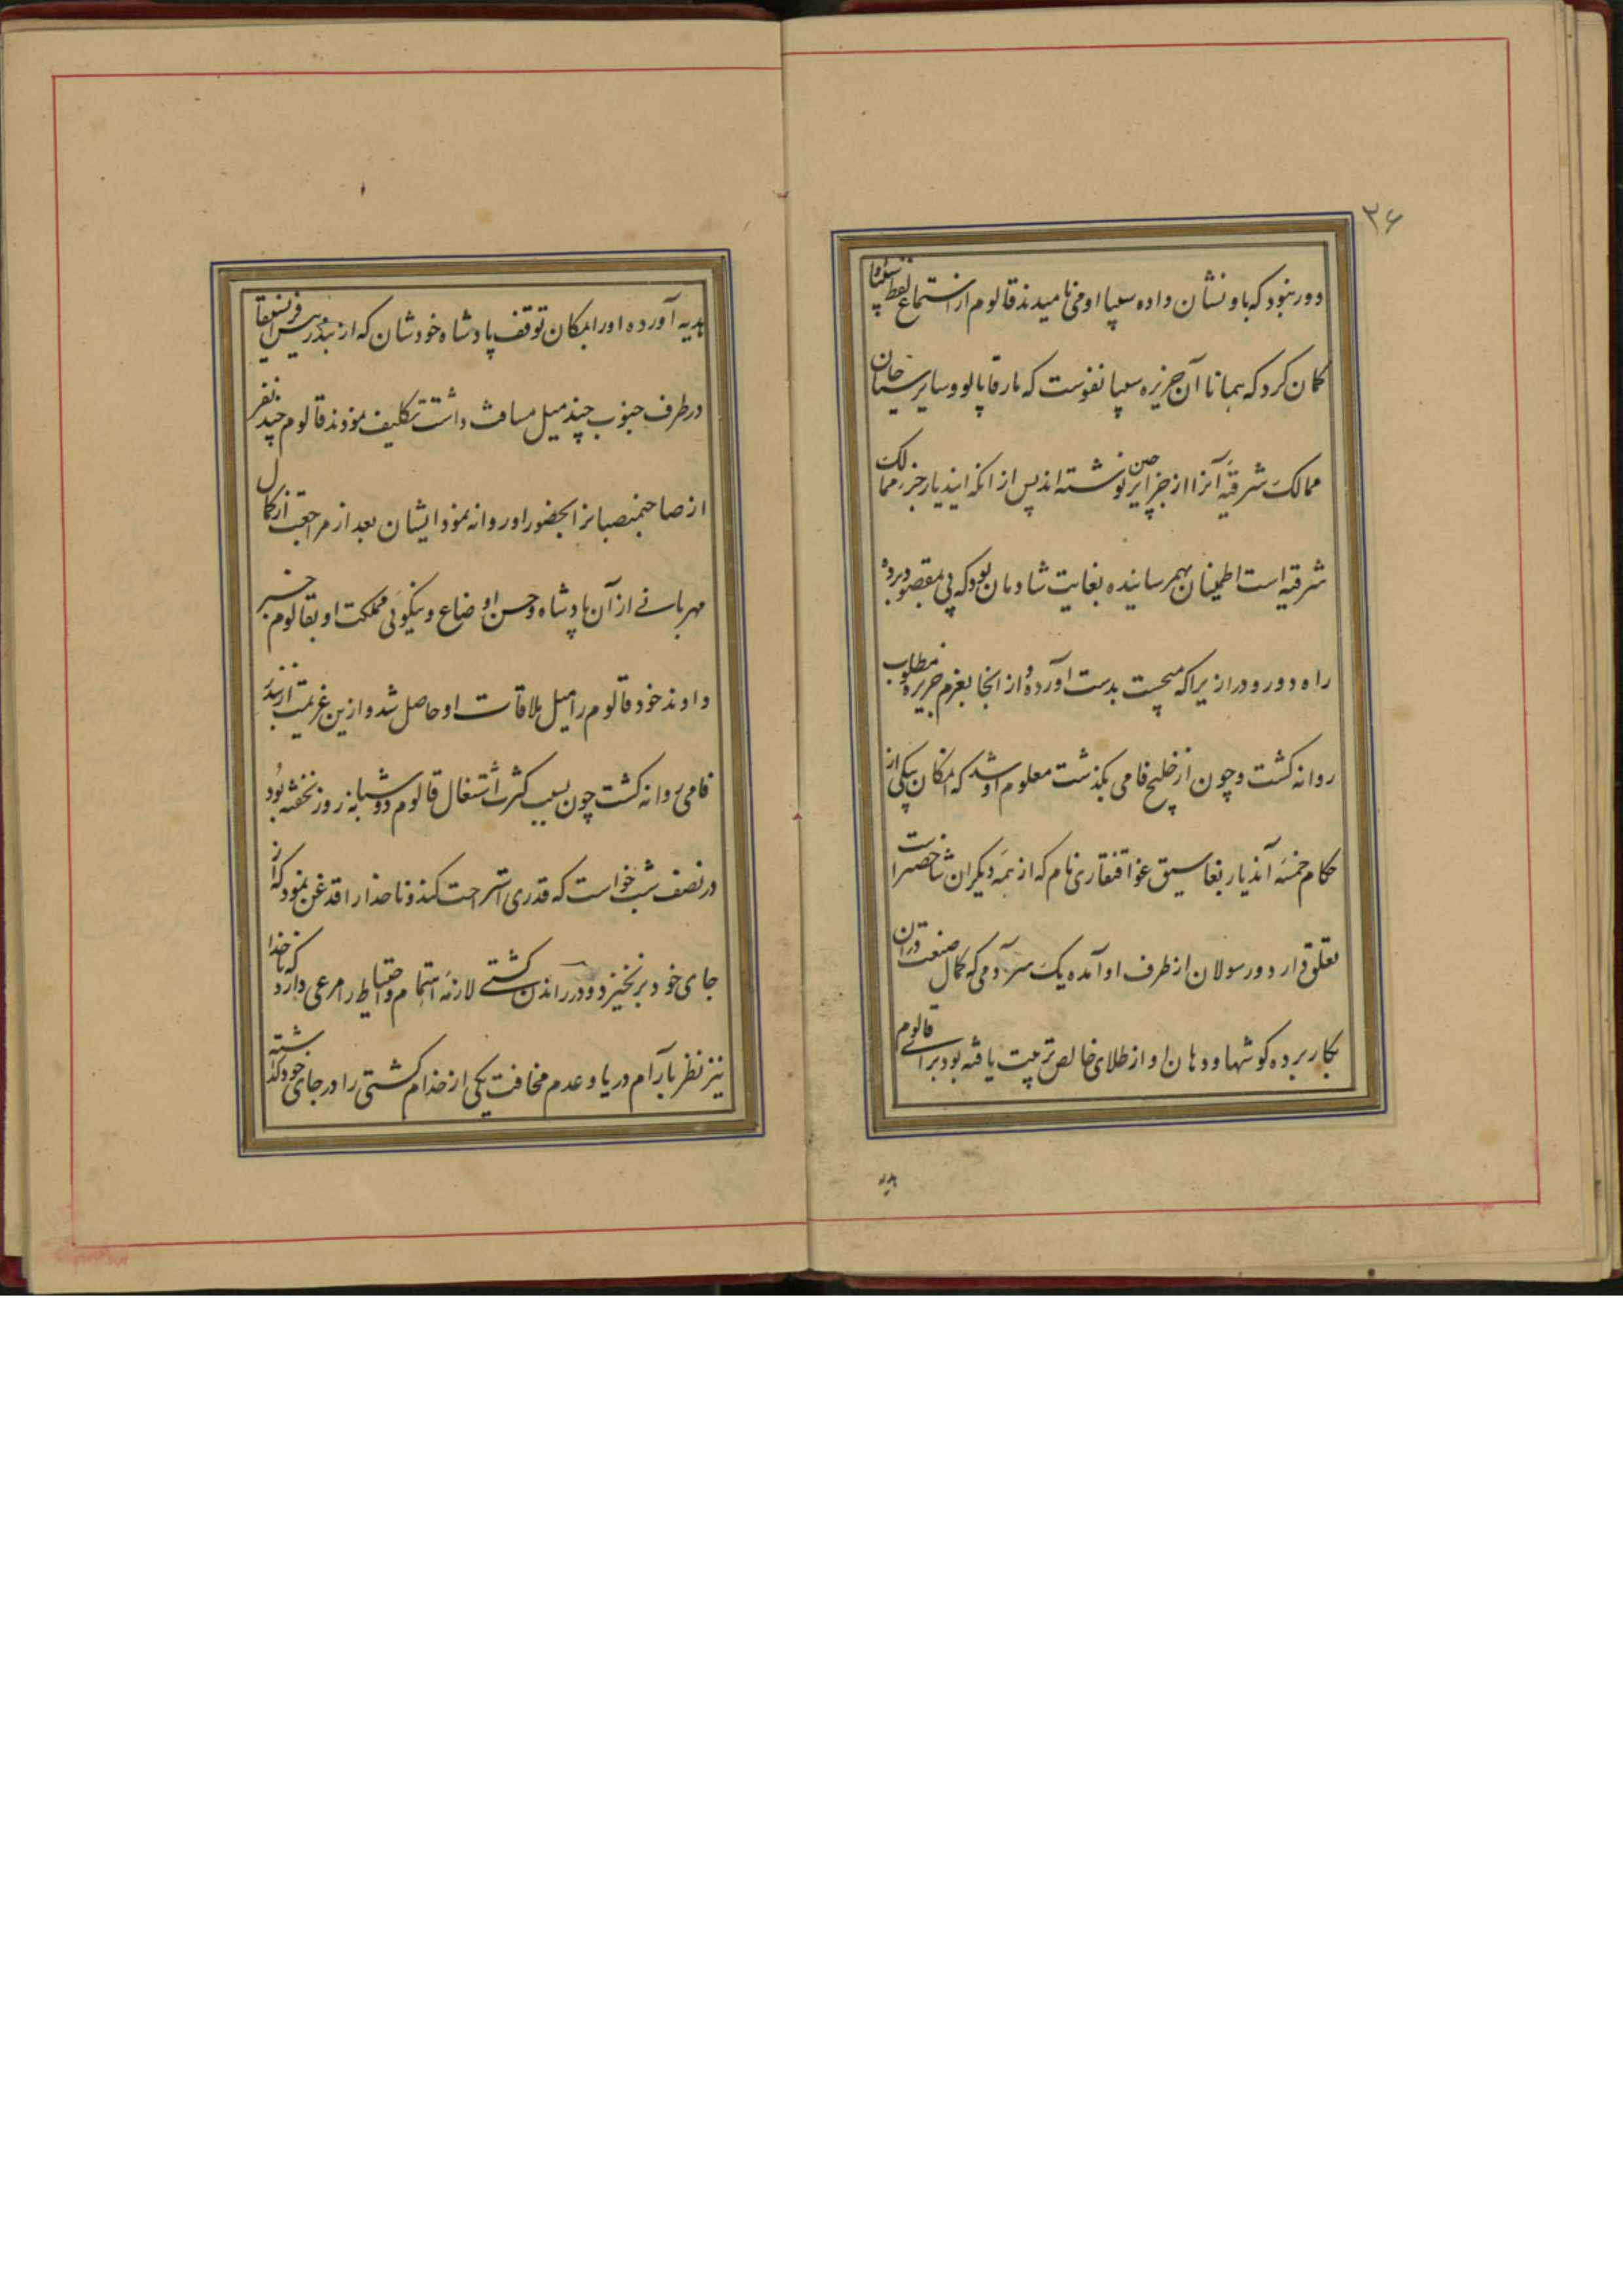 ۳۶
دور نبود که باو نشان داده سیپا اومی نامیدند قالوم از استماع لفظ سیپا
کمان کرد که همانا آن جزیره سیپانغوست که مارقاپالو و سایر سیاحان
ممالک شرقیه آنرا از جزایر چین نوشته اند پس از انکه ایندیار جزء ممالک
شرقیه است اطمینان بهمرسانیده بغایت شادمان بود که پی بمقصود برده
راه دور و دراز یرا که میجست بدست آورده و از انجا بعزم جزیره مطلوب
روانه کشت و چون از خلیج فامی بکذشت معلوم او شد که امکان بیکی از
حکام خمسه آندیار بغاسیق عواقنقاری نام که از همه دیکران شاخصتر است
تعلق دارد و رسولان از طرف او آمده یک سر آدمی که کمال صنعت دران
بکار برده کوشها و دهان او از طلای خالص ترتیب یافته بود برای قالوم
هدیه
هدیه آورده او را بمکان توقف پادشاه خودشان که از بندر
در طرف جنوب چند میل مسافت داشت تکلیف نمودند قالوم چند نفر
از صاحبمنصبانرا بحضور او روانه نمود ایشان بعد از مراجعت از کمال
مهربانی از آن پادشاه و حسن اوضاع و نیکوئی مملکت او بقالوم خبر
دادند خود قالوم را میل ملاقات او حاصل شد و ازین عزیمت از بندر
فامی روانه کشت چون بسبب کثرت اشتغال قالوم دو شبانه روز نخفته بود
در نصف شب خواست که قدری استراحت کند و ناخدا را قدغن نمود که از
جای خود برنخیزد و در راندن کشتی لازمه اهتمام و احتیاط را مرعی دارد که ناخدا
نیز نظر بآرام دریا و عدم مخافت یکی از خدام کشتی را در جای خود کذاشته